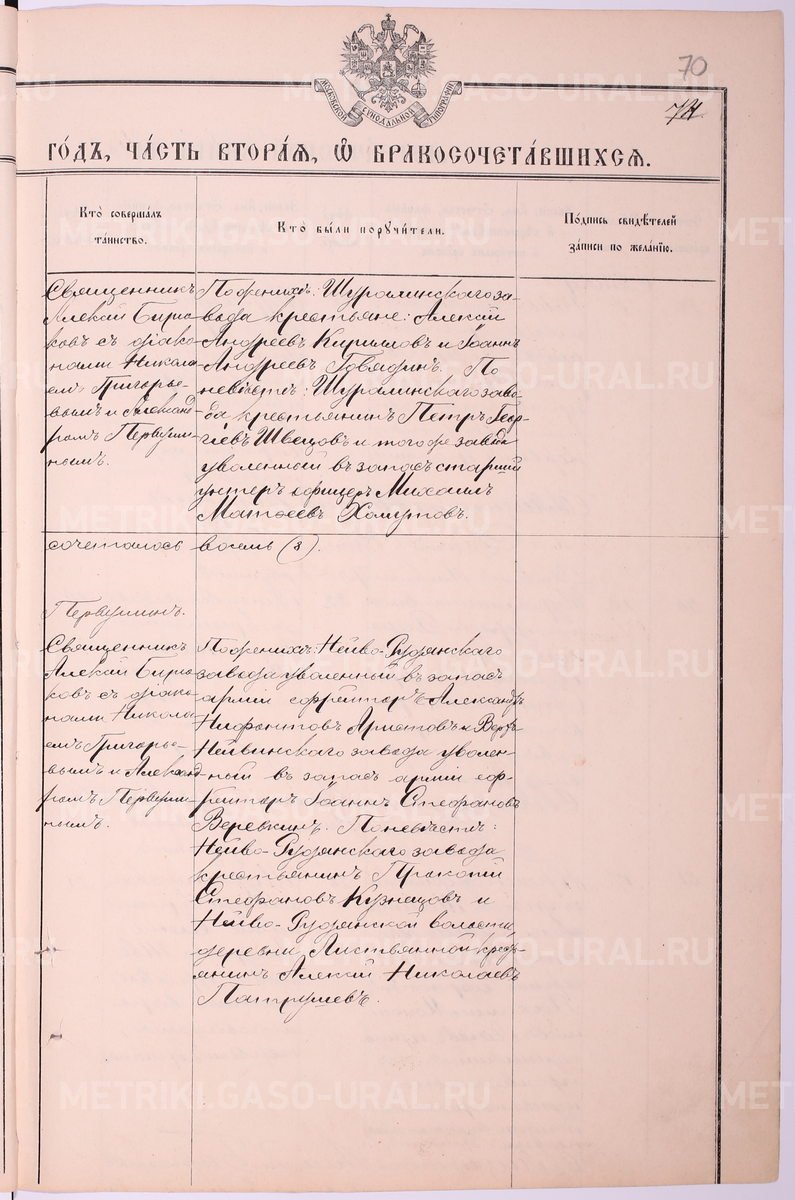 70
74
МОСКОВСКОЙ СѴНОДАЛЬНОЙ ТИПОГРАФІИ
ГО́ДЪ, ЧА́СТЬ ВТОРА́Я, Ѿ БРАКОСОЧЕТА́ВШИХСЯ.
Кто̀ соверша́лъ
та́инство.
Кто̀ бы́ли порꙋчи́тели.
По́дпись свидѣ́телей
за́писи по жела́нїю.
Священникъ
Алексій Бирю-
ковъ съ діако-
нами Никола-
емъ Григорье-
вымъ и Александ-
ромъ Первуши-
нымъ.
По женихѣ: Шуралинскаго за-
вода крестьяне: Алексій
Андреевъ Кириловъ и Іоаннъ
Андреевъ Говядинъ. По
невѣстѣ: Шуралинскаго заво-
да крестьянинъ Петръ Геор-
гіевъ Швецовъ и того же завода
уволенный въ запасъ старшій
унтеръ офицеръ Михаилъ
Матѳеевъ Хомутовъ.
сочеталось восемь (8).
Первушинъ.
Священникъ
Алексій Бирю-
ковъ съ діако-
нами Никола-
емъ Григорье-
вымъ и Александ-
ромъ Первуши-
нымъ.
По женихѣ: Нейво-Рудянскаго
завода уволенный въ запасъ
арміи ефрейторъ Александръ
Нифонтовъ Аристовъ и Верхъ-
Нейвинскаго завода уволен-
ный въ запасъ арміи еф-
рейторъ Іоаннъ Стефановъ
Веревкинъ. По невѣстѣ:
Нейво-Рудянскаго завода
крестьянинъ Прокопій
Стефановъ Кузнецовъ и
Нейво-Рудянской волости,
деревни Листвянной кресть-
янинъ Алексій Николаевъ
Патрушевъ.
METRIKI.GASO-URAL.RU